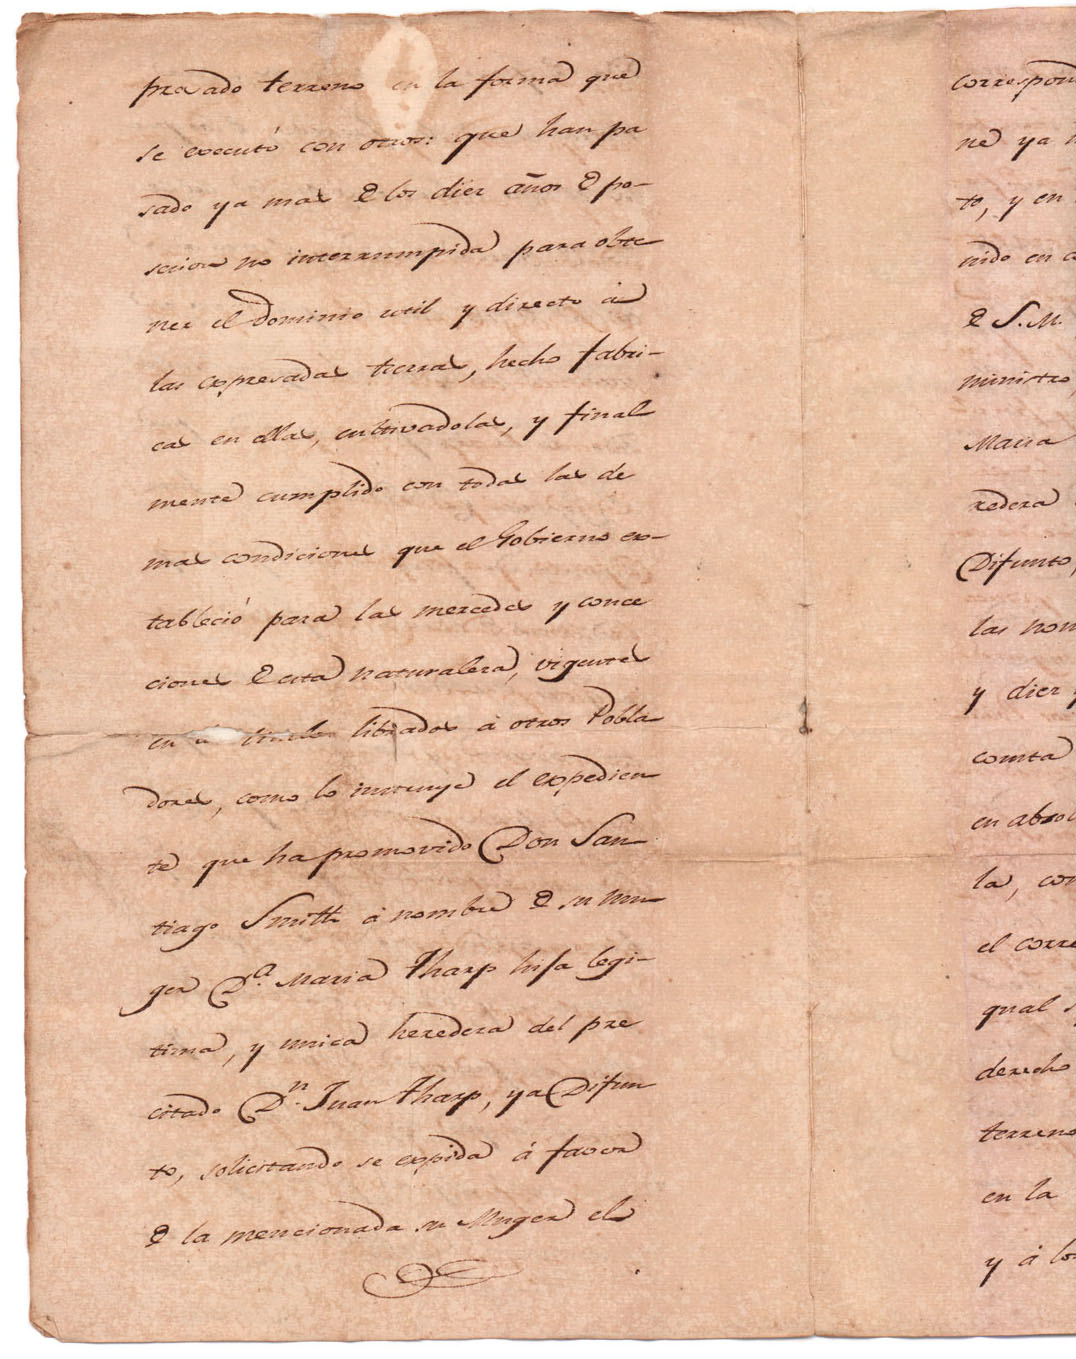 preado terreno en la forma que
se executó con otros: que han pa
sado ya mas de los diez años de po-
secion no interrumpida para obte
ner el dominio util y directo á
las expresadas tierras, hecho fabri-
cas en ellas, cultivadolas, y final
mente cumplido con todas las de
mas condiciones que el Gobierno es-
tableció para las mercedes y conce
ciones de esta naturaleza, vigentes
en titulos librados á otros Pobla
dores, como lo instruye el expedien
te que ha promovido Don San
tiago Smith á nombre de su mu
ger Dª. Maria Tharp hija legi-
tima, y unica heredera del pre
citado Dn. Juan Tharp, ya Difun
to, solicitando se expida á favor
de la mencionada su Muger el
correspon
ne ya
to, y en
nido en
de S.M.
ministro,
Maria
redera
Difunto,
las
y diez
consta
en
la, con
el corre
qual
derecho
terreno
en la
y á los